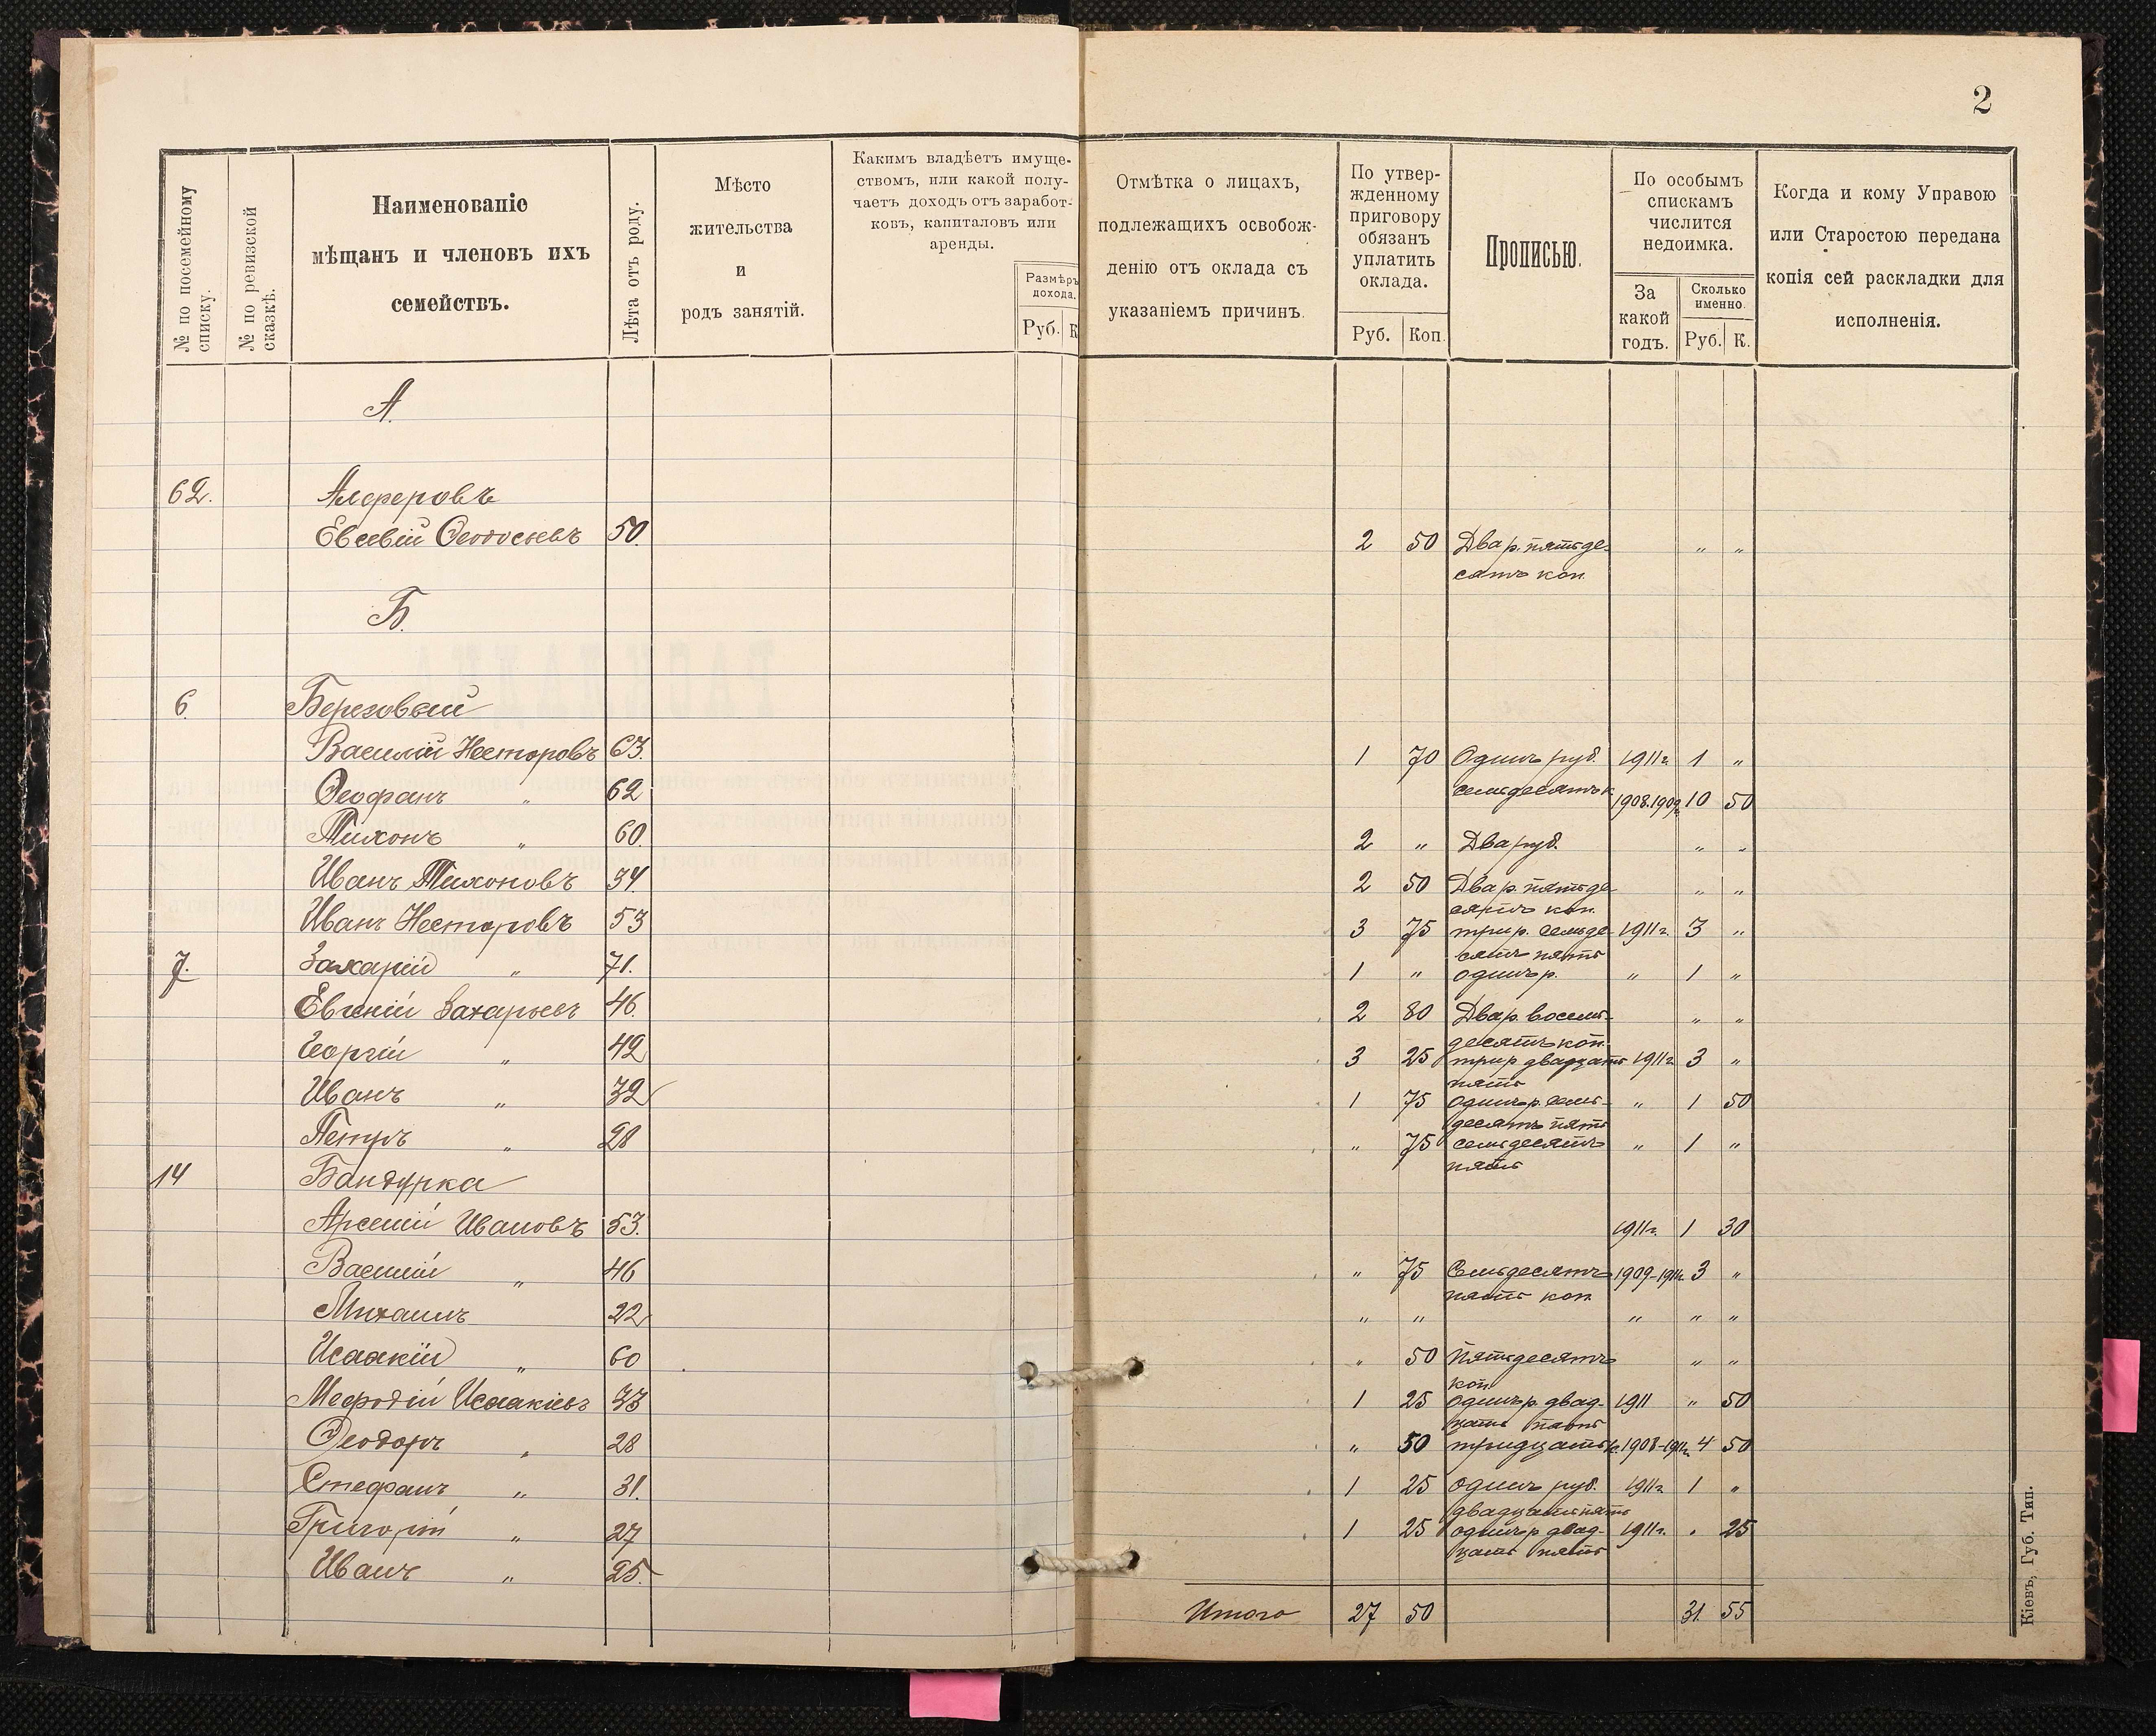 2
№ по посемейному списку.
№ по ревизской сказкѣ.
Наименованіе
мѣщанъ и членовъ ихъ
семействъ.
Лѣта отъ роду.
Мѣсто
жительства
и
родъ занятій.
Какимъ владѣетъ имуще-
ствомъ, или какой полу-
чаетъ доходъ отъ заработ-
ковъ, капиталовъ или
аренды.
Размѣръ
дохода.
Руб. К
Отмѣтка о лицахъ,
подлежащихъ освобож-
денію отъ оклада съ
указаніемъ причинъ.
По утвер-
жденному
приговору
обязанъ
уплатить
оклада.
Руб. Коп.
Прописью.
По особымъ
спискамъ
числится
недоимка.
За
какой
годъ.
Сколько
именно.
Руб. К.
Когда и кому Управою
или Старостою передана
копія сей раскладки для
исполненія.
А.
62. Алферовъ
Евсевій Ѳеодосіевъ 50. 2 50 Два р. пятьде- " "
сятъ коп.
Б.
6. Березовскій
Василій Несторовъ 63. 1 70 Одинъ руб. 1911 г. 1 "
Ѳеофанъ " 62 семьдесятъ к. 1908.1909 г. 10 50
Тихонъ " 60. 2 " Два руб. " "
Иванъ Тихоновъ 34. 2 50 Два р. пятьде- " "
сятъ коп.
Иванъ Несторовъ 53 3 75 три р. семьде- 1911 г. 3 "
сятъ пять
7. Захарій " 71. 1 " одинъ р. " 1 "
Евгеній Захарьевъ 46. 2 80 Два р. восемь- " "
десятъ коп.
Георгій " 42 3 25 три р двадцать 1911 г. 3 "
пять
Иванъ " 32 1 75 одинъ р. семь- " 1 50
десятъ пять
Петръ " 28 " 75 семьдесятъ " 1 "
пять
14 Бандурка
Арсеній Ивановъ 53. 1911 г. 1 30
Василій " 46 " 75 Семьдесятъ 1909-1911 г. 3 "
пять коп.
Михаилъ 22 " " " " "
Исаакій " 60 " 50 Пятьдесятъ " "
коп
Меѳодій Исаакіевъ 33 1 25 одинъ р. двад- 1911 " 50
цать пять
Ѳеодоръ " 28 " 30 тридцать к. 1908-1911 г. 4 50
Стефанъ " 31. 1 25 одинъ руб. 1911 г. 1 "
двадцать пять
Григорій " 27 1 25 одинъ р двад- 1911 г. . 25
цать пять
Иванъ " 25.
Итого 27 50 31. 55
Кіевъ, Губ. Тип.